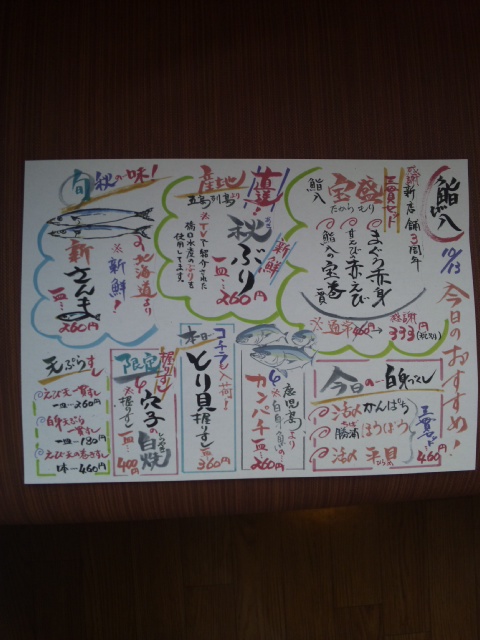 鮨八
10/13
今日のおすすめ!
感謝新店舗3周年
五貫セット
鮨八 宝盛
たからもり
まぐろ赤身
甘えび 赤えび
鮨八の宝巻
※通常460円→感謝
393円(税別)
産地直送!
五島列島より
新鮮
秋ぶり
一皿…260円
※TVで紹介された
橋口水産のぶりを
使用してます。
旬 秋の味!
北海道より
※新鮮!
新さんま
一皿…260円
今日の一白身づくし
三貫セット
活〆かんぱち
勝浦 ほうぼう
活〆 平目
460円
鹿児島より
カンパチ
一皿…260円
コチラも入荷!
本日
とり貝
握りずし
一皿…360円
握りずし
限定
穴子の白焼
※握りずし
一皿…400円
天ぷらずし
えび天一貫ずし
一皿…260円
白身天ぷら
一貫ずし
一皿…130円
えび天の巻きずし
1本…460円